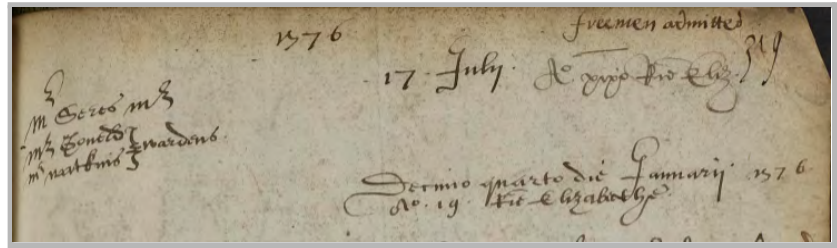 freemen admitted
1576
17 July. Ao xviijo Rne Eliz.
mr Seres mr
mr Coneld
mr watkins } wardens
Decimo quarto die Januarij 1576
Ao. 19. Rne Elizabethe.